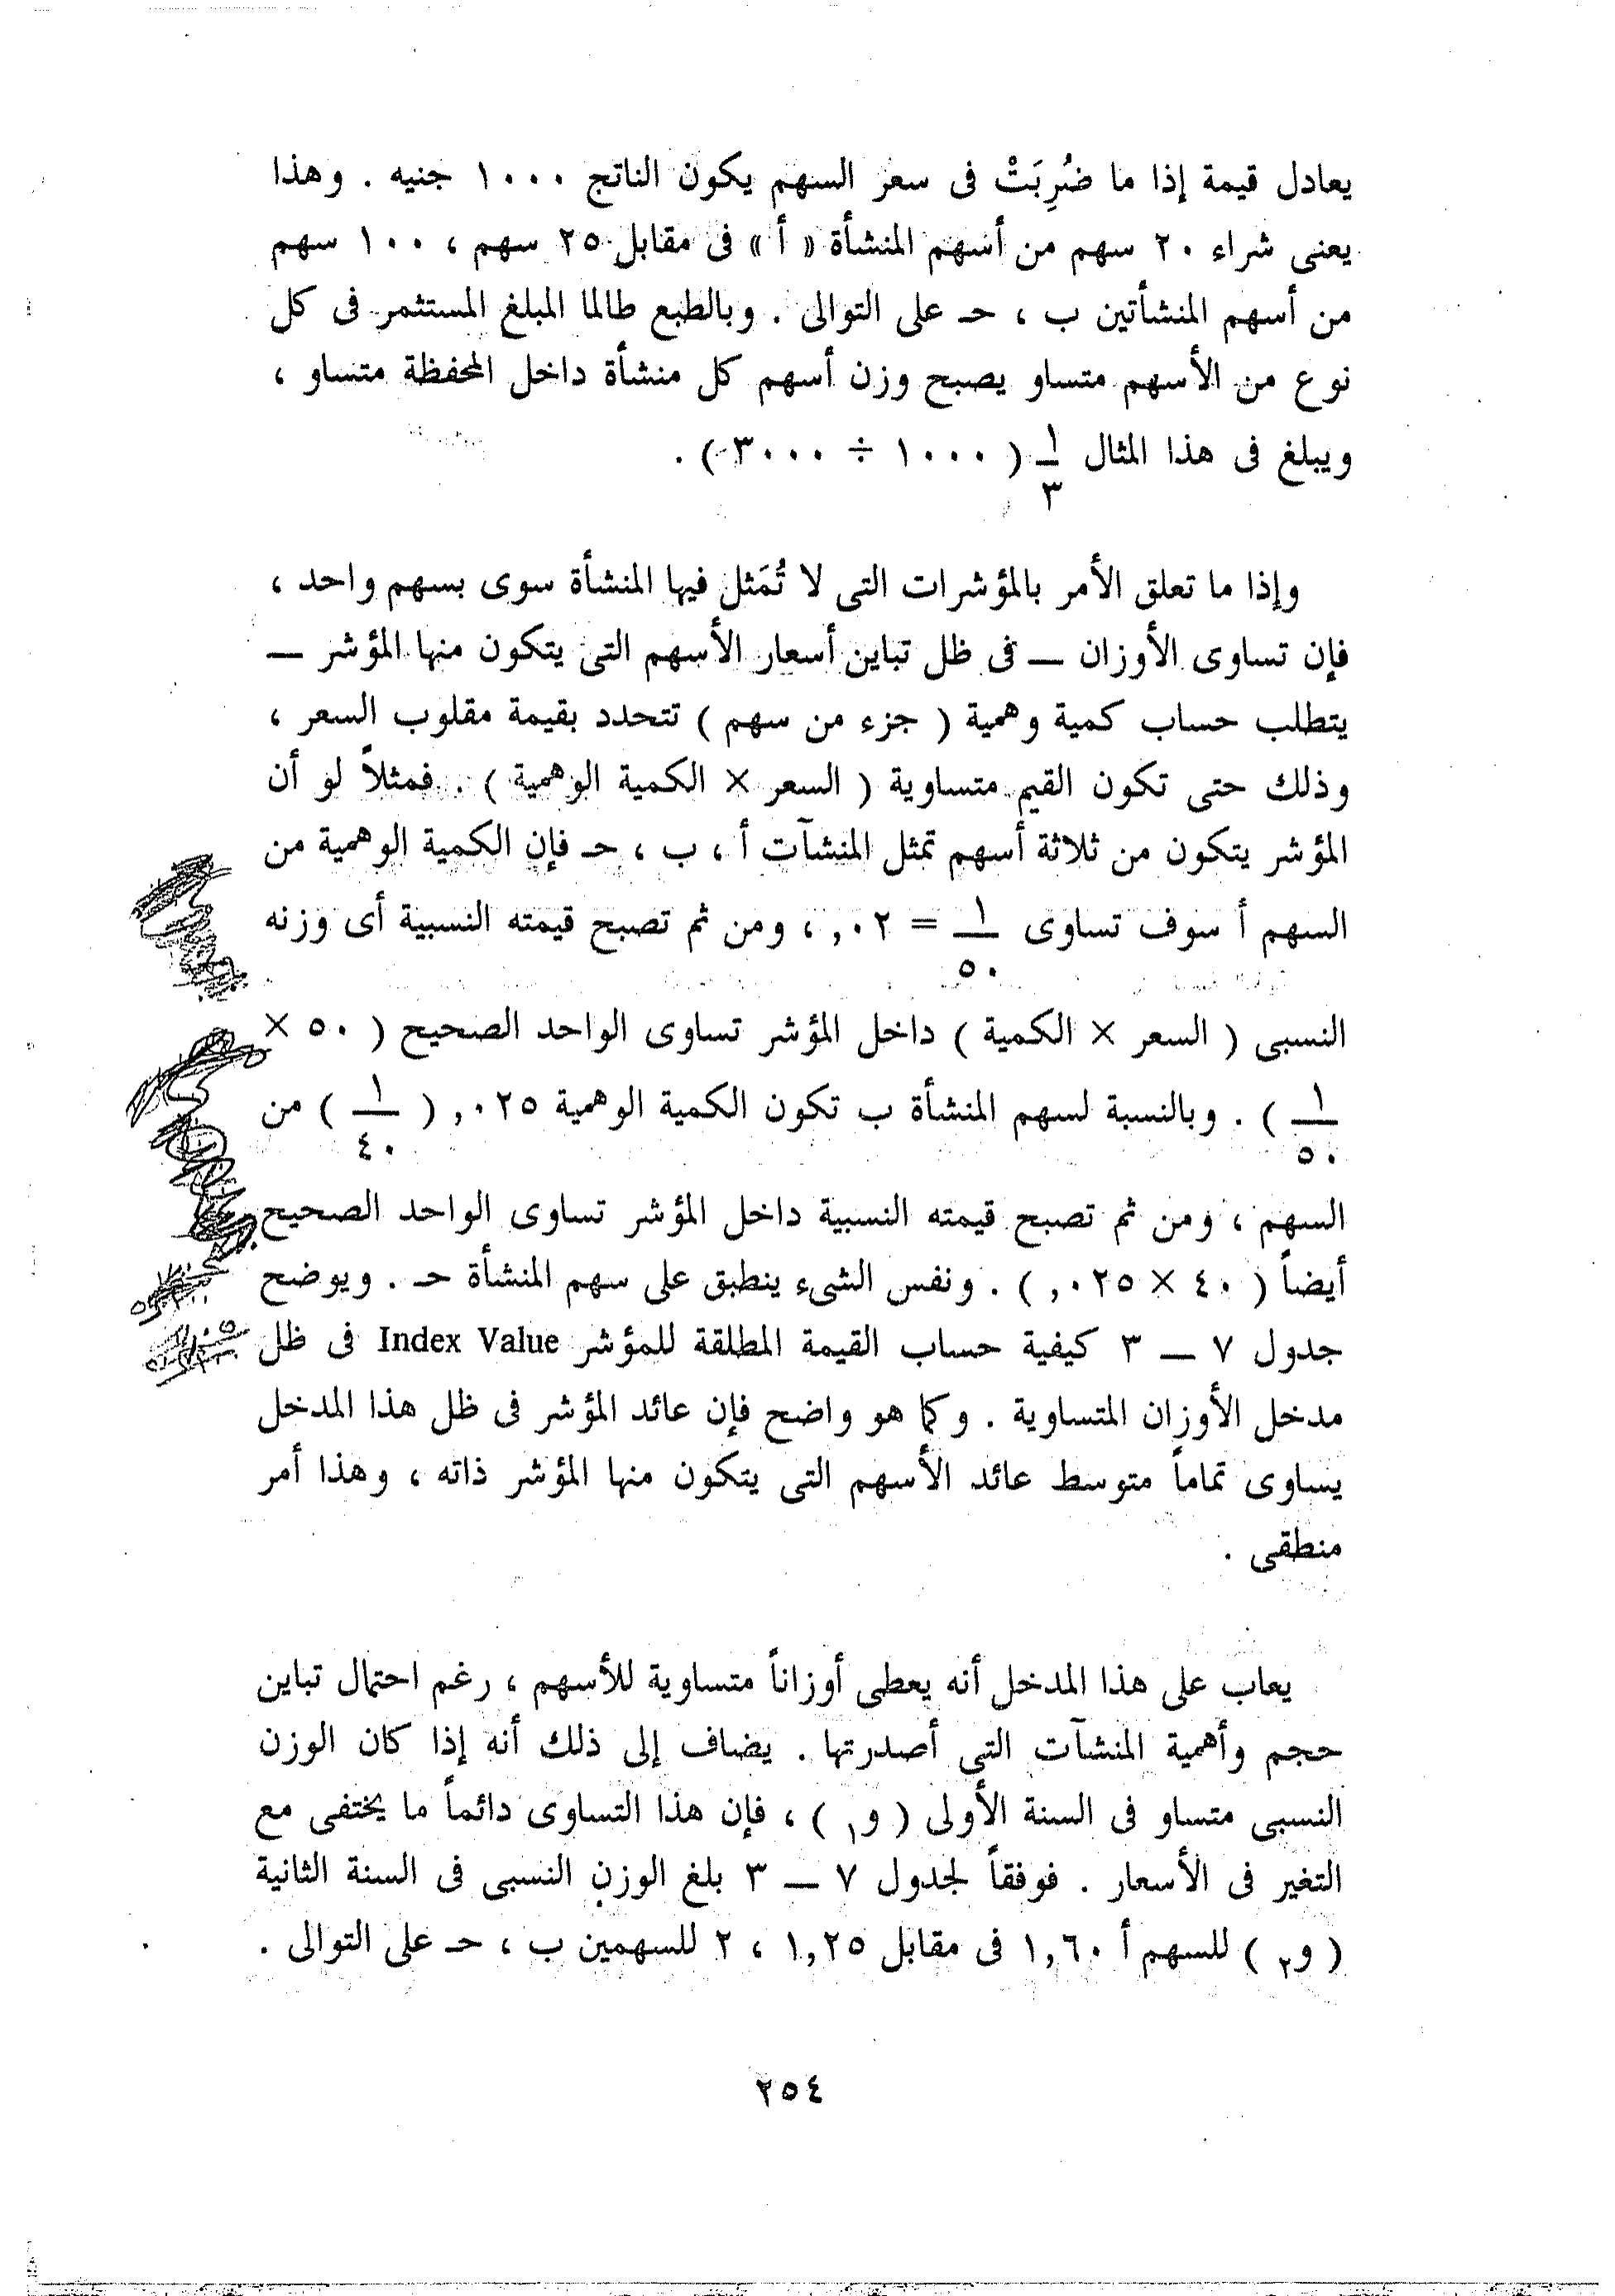 يعادل قيمة إذا ما ضُرِبَتْ فى سعر السهم يكون الناتج ١٠٠٠ جنيه . وهذا
يعنى شراء ٢٠ سهم من أسهم المنشأة « أ » فى مقابل ٢٥ سهم ، ١٠٠ سهم
من أسهم المنشأتين ب ، حـ على التوالى . وبالطبع طالما المبلغ المستثمر فى كل
نوع من الأسهم متساو يصبح وزن أسهم كل منشأة داخل المحفظة متساو ،
ويبلغ فى هذا المثال ١/٣ ( ١٠٠٠ ÷ ٣٠٠٠ ) .
وإذا ما تعلق الأمر بالمؤشرات التى لا تُمَثل فيها المنشأة سوى بسهم واحد ،
فإن تساوى الأوزان — فى ظل تباين أسعار الأسهم التى يتكون منها المؤشر —
يتطلب حساب كمية وهمية ( جزء من سهم ) تتحدد بقيمة مقلوب السعر ،
وذلك حتى تكون القيم متساوية ( السعر × الكمية الوهمية ) . فمثلاً لو أن
المؤشر يتكون من ثلاثة أسهم تمثل المنشآت أ ، ب ، حـ فإن الكمية الوهمية من
السهم أ سوف تساوى ١/٥٠ = ٠٢, ، ومن ثم تصبح قيمته النسبية أى وزنه
النسبى ( السعر × الكمية ) داخل المؤشر تساوى الواحد الصحيح ( ٥٠ ×
١/٥٠ ) . وبالنسبة لسهم المنشأة ب تكون الكمية الوهمية ٠٢٥, ( ١/٤٠ ) من
السهم ، ومن ثم تصبح قيمته النسبية داخل المؤشر تساوى الواحد الصحيح
أيضاً ( ٤٠ × ٠٢٥, ) . ونفس الشىء ينطبق على سهم المنشأة حـ . ويوضح
جدول ٧ — ٣ كيفية حساب القيمة المطلقة للمؤشر Index Value فى ظل
مدخل الأوزان المتساوية . وكما هو واضح فإن عائد المؤشر فى ظل هذا المدخل
يساوى تماماً متوسط عائد الأسهم التى يتكون منها المؤشر ذاته ، وهذا أمر
منطقى .
يعاب على هذا المدخل أنه يعطى أوزاناً متساوية للأسهم ، رغم احتمال تباين
حجم وأهمية المنشآت التى أصدرتها . يضاف إلى ذلك أنه إذا كان الوزن
النسبى متساو فى السنة الأولى ( و١ ) ، فإن هذا التساوى دائماً ما يختفى مع
التغير فى الأسعار . فوفقاً لجدول ٧ — ٣ بلغ الوزن النسبى فى السنة الثانية
( و٢ ) للسهم أ ١,٦٠ فى مقابل ١,٢٥ ، ٢ للسهمين ب ، حـ على التوالى .
٢٥٤